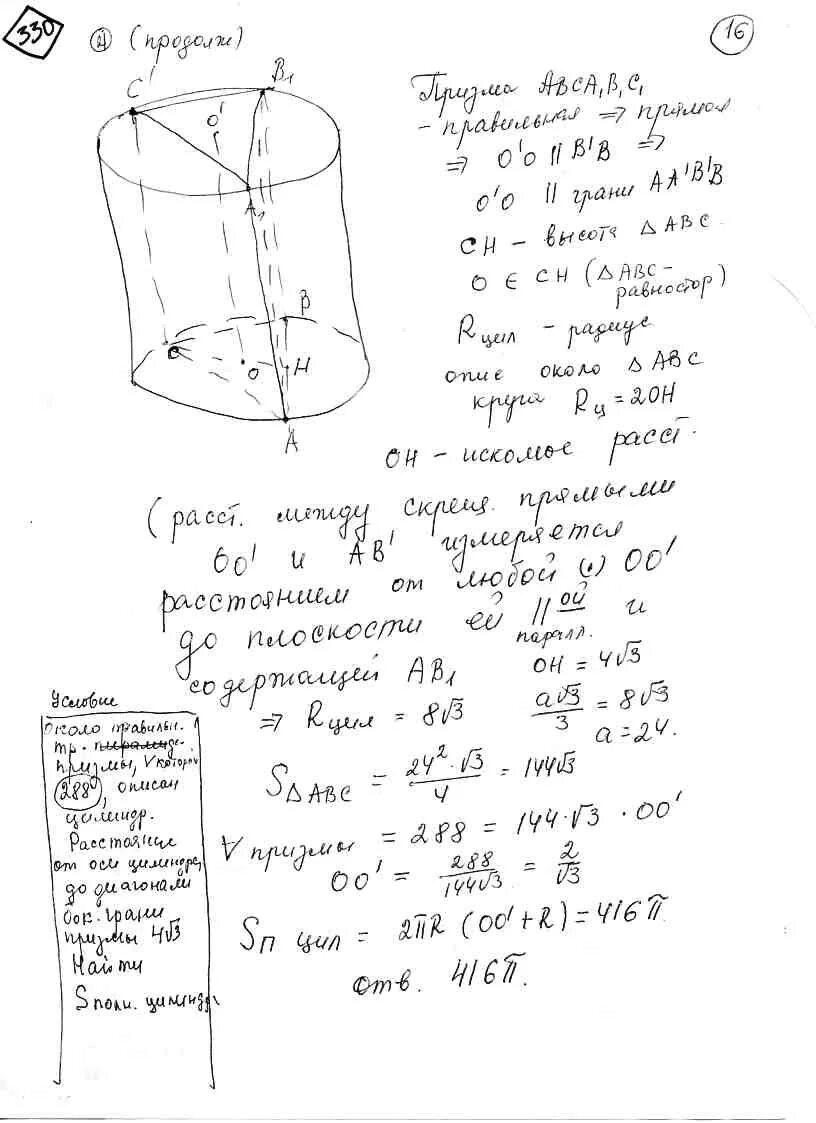 330
② (продолж)
16
C'
B₁
O'
A₁
B
C
O
H
A
Призма ABCA₁B₁C₁
- правильная ⇒ прямая
⇒ O'O || B'B ⇒
O'O || грани AA'B'B
CH – высота △ABC
O ∈ CH (△ABC-
равностор)
Rцил – радиус
опис около △ABC
круга Rц = 2OH
OH – искомое расст.
(расст. между скрещ. прямыми
OO' и AB' измеряется
расстоянием от любой (·) OO'
до плоскости ей ||ой и
паралл.
содержащей AB₁
OH = 4√3
⇒ Rцил = 8√3
a√3/3 = 8√3
a = 24.
S△ABC = 24²·√3/4 = 144√3
V призмы = 288 = 144·√3 · OO'
OO' = 288/144√3 = 2/√3
Sп цил = 2πR (OO'+R) = 416π
Отв. 416π.
Условие
Около правильн.
тр. пирамиде
призмы, V которой
288, описан
цилиндр.
Расстояние
от оси цилиндра
до диагонали
бок. грани
призмы 4√3
Найти
Sполн. цилиндра